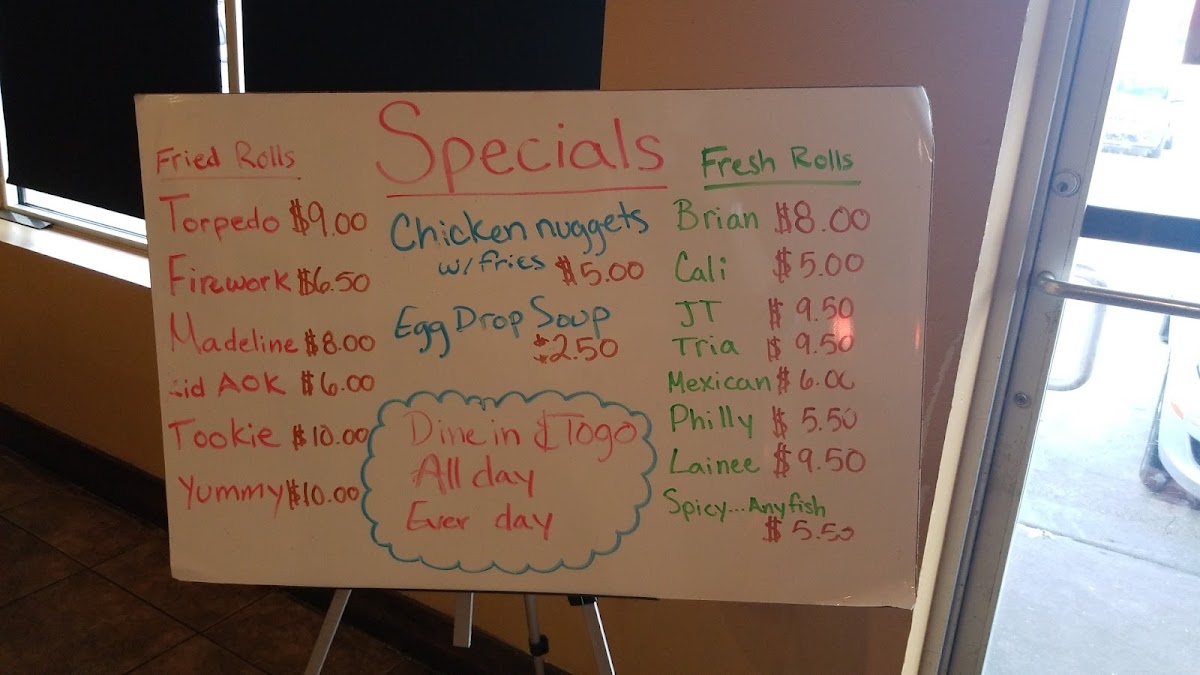 Specials
Fried Rolls
Torpedo $9.00
Firework $6.50
Madeline $8.00
AOK $6.00
Tookie $10.00
Yummy $10.00
Chicken nuggets
w/fries $5.00
Egg Drop Soup
$2.50
Dine in & Togo
All day
Ever day
Fresh Rolls
Brian $8.00
Cali $5.00
JT $9.50
Tria $9.50
Mexican $6.00
Philly $5.50
Lainee $9.50
Spicy... Anyfish
$5.50